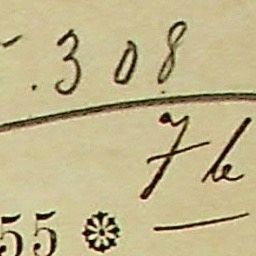 .308
7b
55